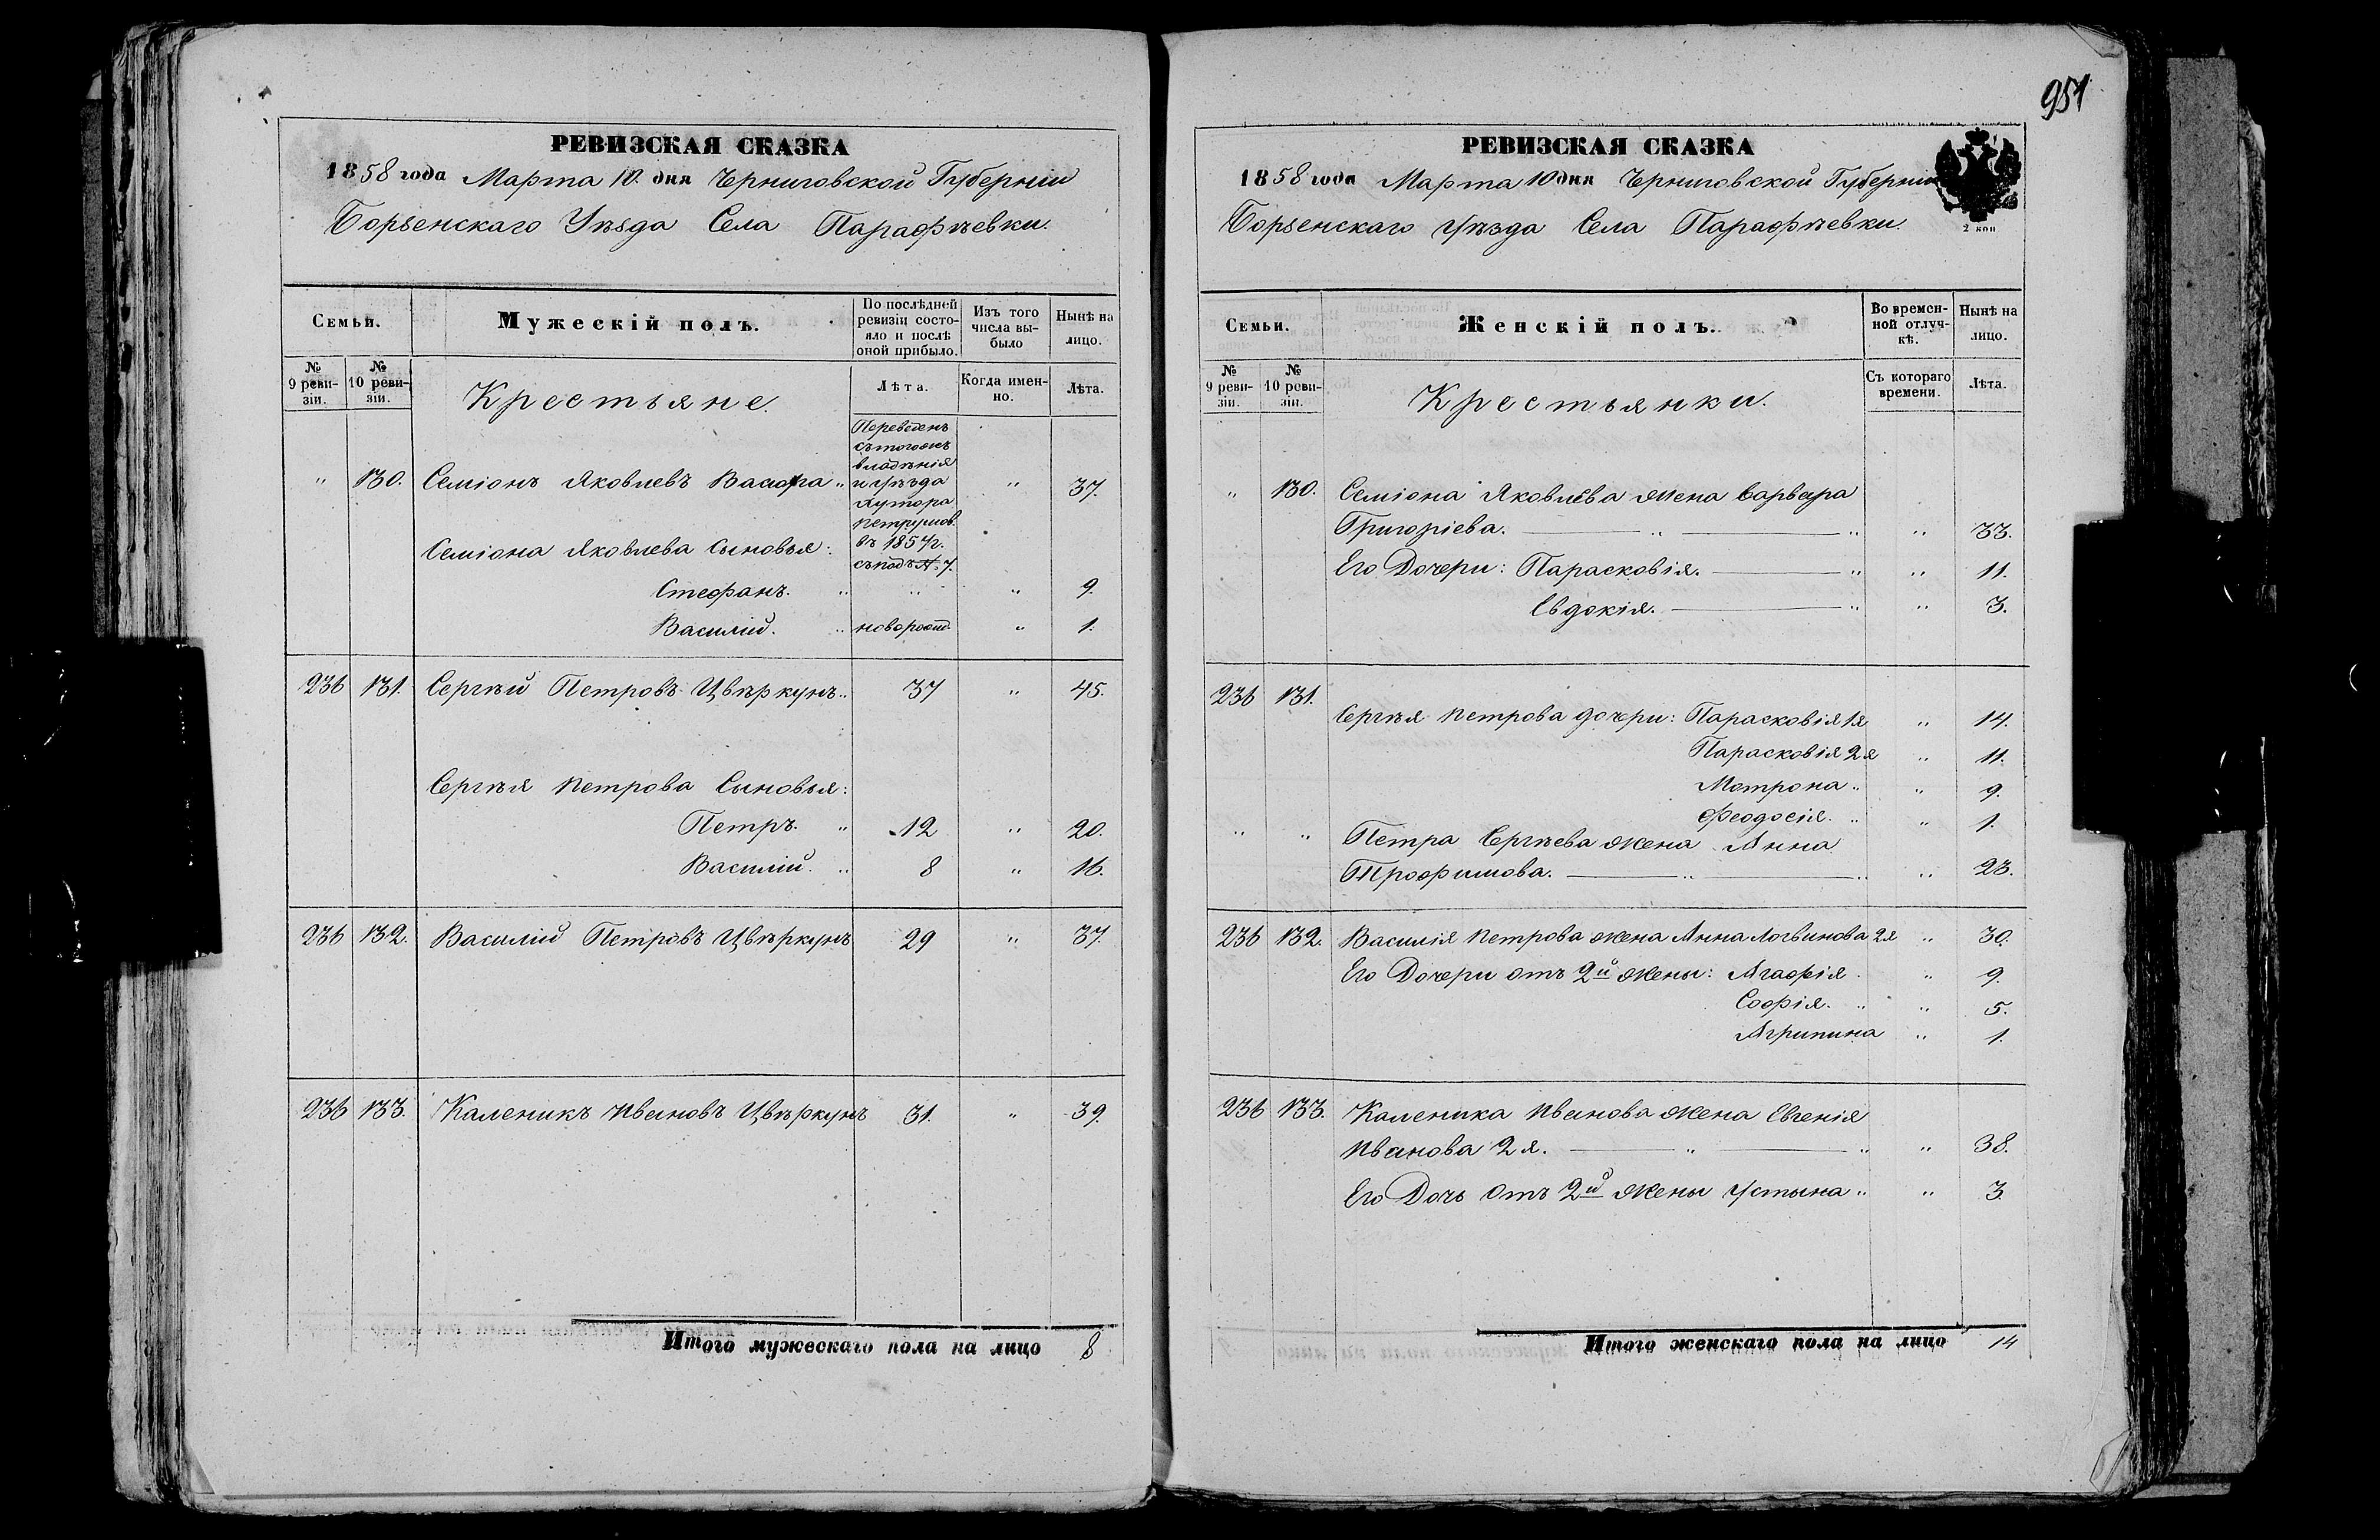 951
РЕВИЗСКАЯ СКАЗКА
1858 года Марта 10. дня Черниговской Губерніи
Борзенскаго Уѣзда Села Парафѣевки.
Семьи.
Мужескій полъ.
По послѣдней ревизіи состояло и послѣ оной прибыло.
Изъ того числа выбыло
Нынѣ на лицо.
№ 9 ревизіи.
№ 10 ревизіи.
Крестьяне.
Лѣта.
Когда именно.
Лѣта.
Переведенъ
съ того же
владѣнія
и уѣзда
хутора
въ 1857г.
съ подъ № 7.
" 130. Семіонъ Яковлевъ " " 37.
Семіона Яковлева Сыновья:
Стефанъ. " " " 9.
Василій. " новорожд. " 1.
236 131. Сергѣй Петровъ Цвѣркунъ " 37 " 45.
Сергѣя Петрова Сыновья:
Петръ. " 12 " 20.
Василій. " 8 " 16.
236 132. Василій Петровъ Цвѣркунъ 29 " 37.
236 133. Каленикъ Ивановъ Цвѣркунъ 31. " 39.
Итого мужескаго пола на лицо 8
РЕВИЗСКАЯ СКАЗКА
1858 года Марта 10 дня Черниговской Губерніи
Борзенскаго Уѣзда Села Парафѣевки.
2 коп
Семьи.
Женскій полъ.
Во временной отлучкѣ.
Нынѣ на лицо.
№ 9 ревизіи.
№ 10 ревизіи.
Крестьянки.
Съ котораго времени.
Лѣта.
" 130. Семіона Яковлева жена Варвара
Григоріева. " " " 33.
Его Дочери: Парасковія. " " 11.
Евдокія. " " 3.
236 131.
Сергѣя Петрова дочери: Парасковія 1я " 14.
Парасковія 2я " 11.
Мотрона " " 9.
Феодосія. " " 1.
" " Петра Сергѣева жена Анна
Трофимова. " " " 23.
236 132. Василія Петрова жена Анна Логвинова 2я " 30.
Его Дочери отъ 2й жены: Агафія " 9.
Софія. " " 5.
Агрипина " 1.
236 133. Каленика Иванова жена Евгенія
Иванова 2я. " " " 38.
Его Дочь отъ 2й жены Устына " " 3.
Итого женскаго пола на лицо 14